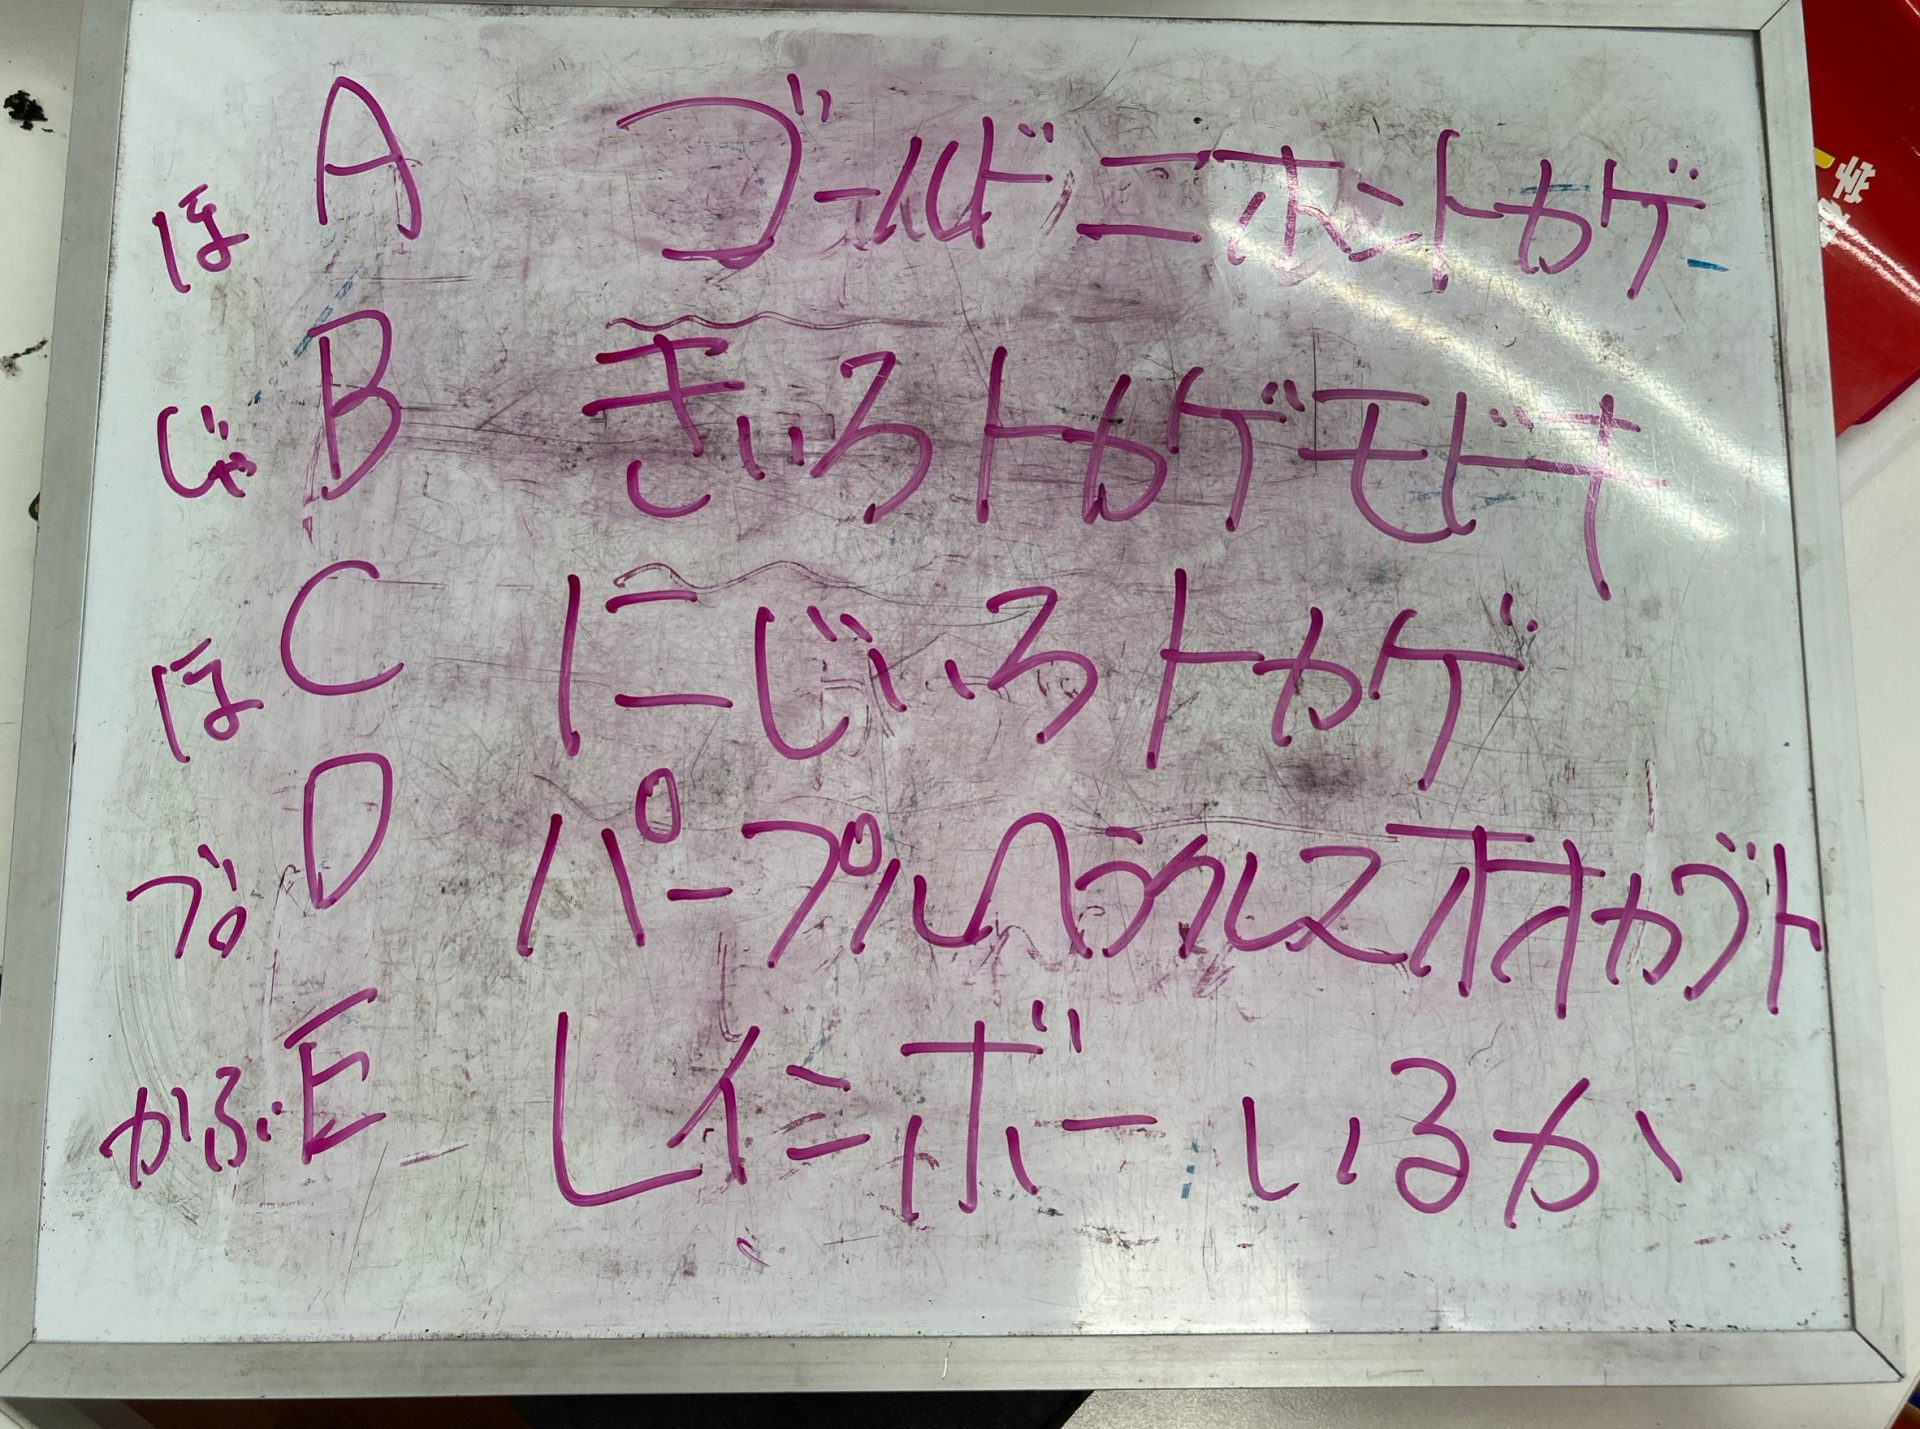 ほ A ゴールドニホントカゲ
じゃ B きいろトカゲモドキ
ほ C にじいろトカゲ
ぶ D パープルヘラクレスオオカブト
かぶ E レインボーいるか